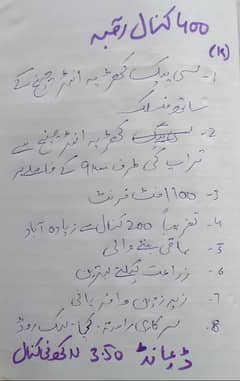 400 کنال رقبہ
(19)
1- سی پیک کھڑپہ انٹرچینج کے
ساتھ منسلک
2- کھڑپہ انٹرچینج سے
تراپ کی طرف 9 کے فاصلے پر
3- 1100 فٹ فرنٹ
4- تقریباً 200 کنال سے زیادہ آباد
5- باقی بننے والی
6- زراعت کیلئے بہترین
7- زیر زمین وافر پانی
8- سرکاری راستہ، لنک روڈ
ڈیمانڈ 3.50 لاکھ فی کنال